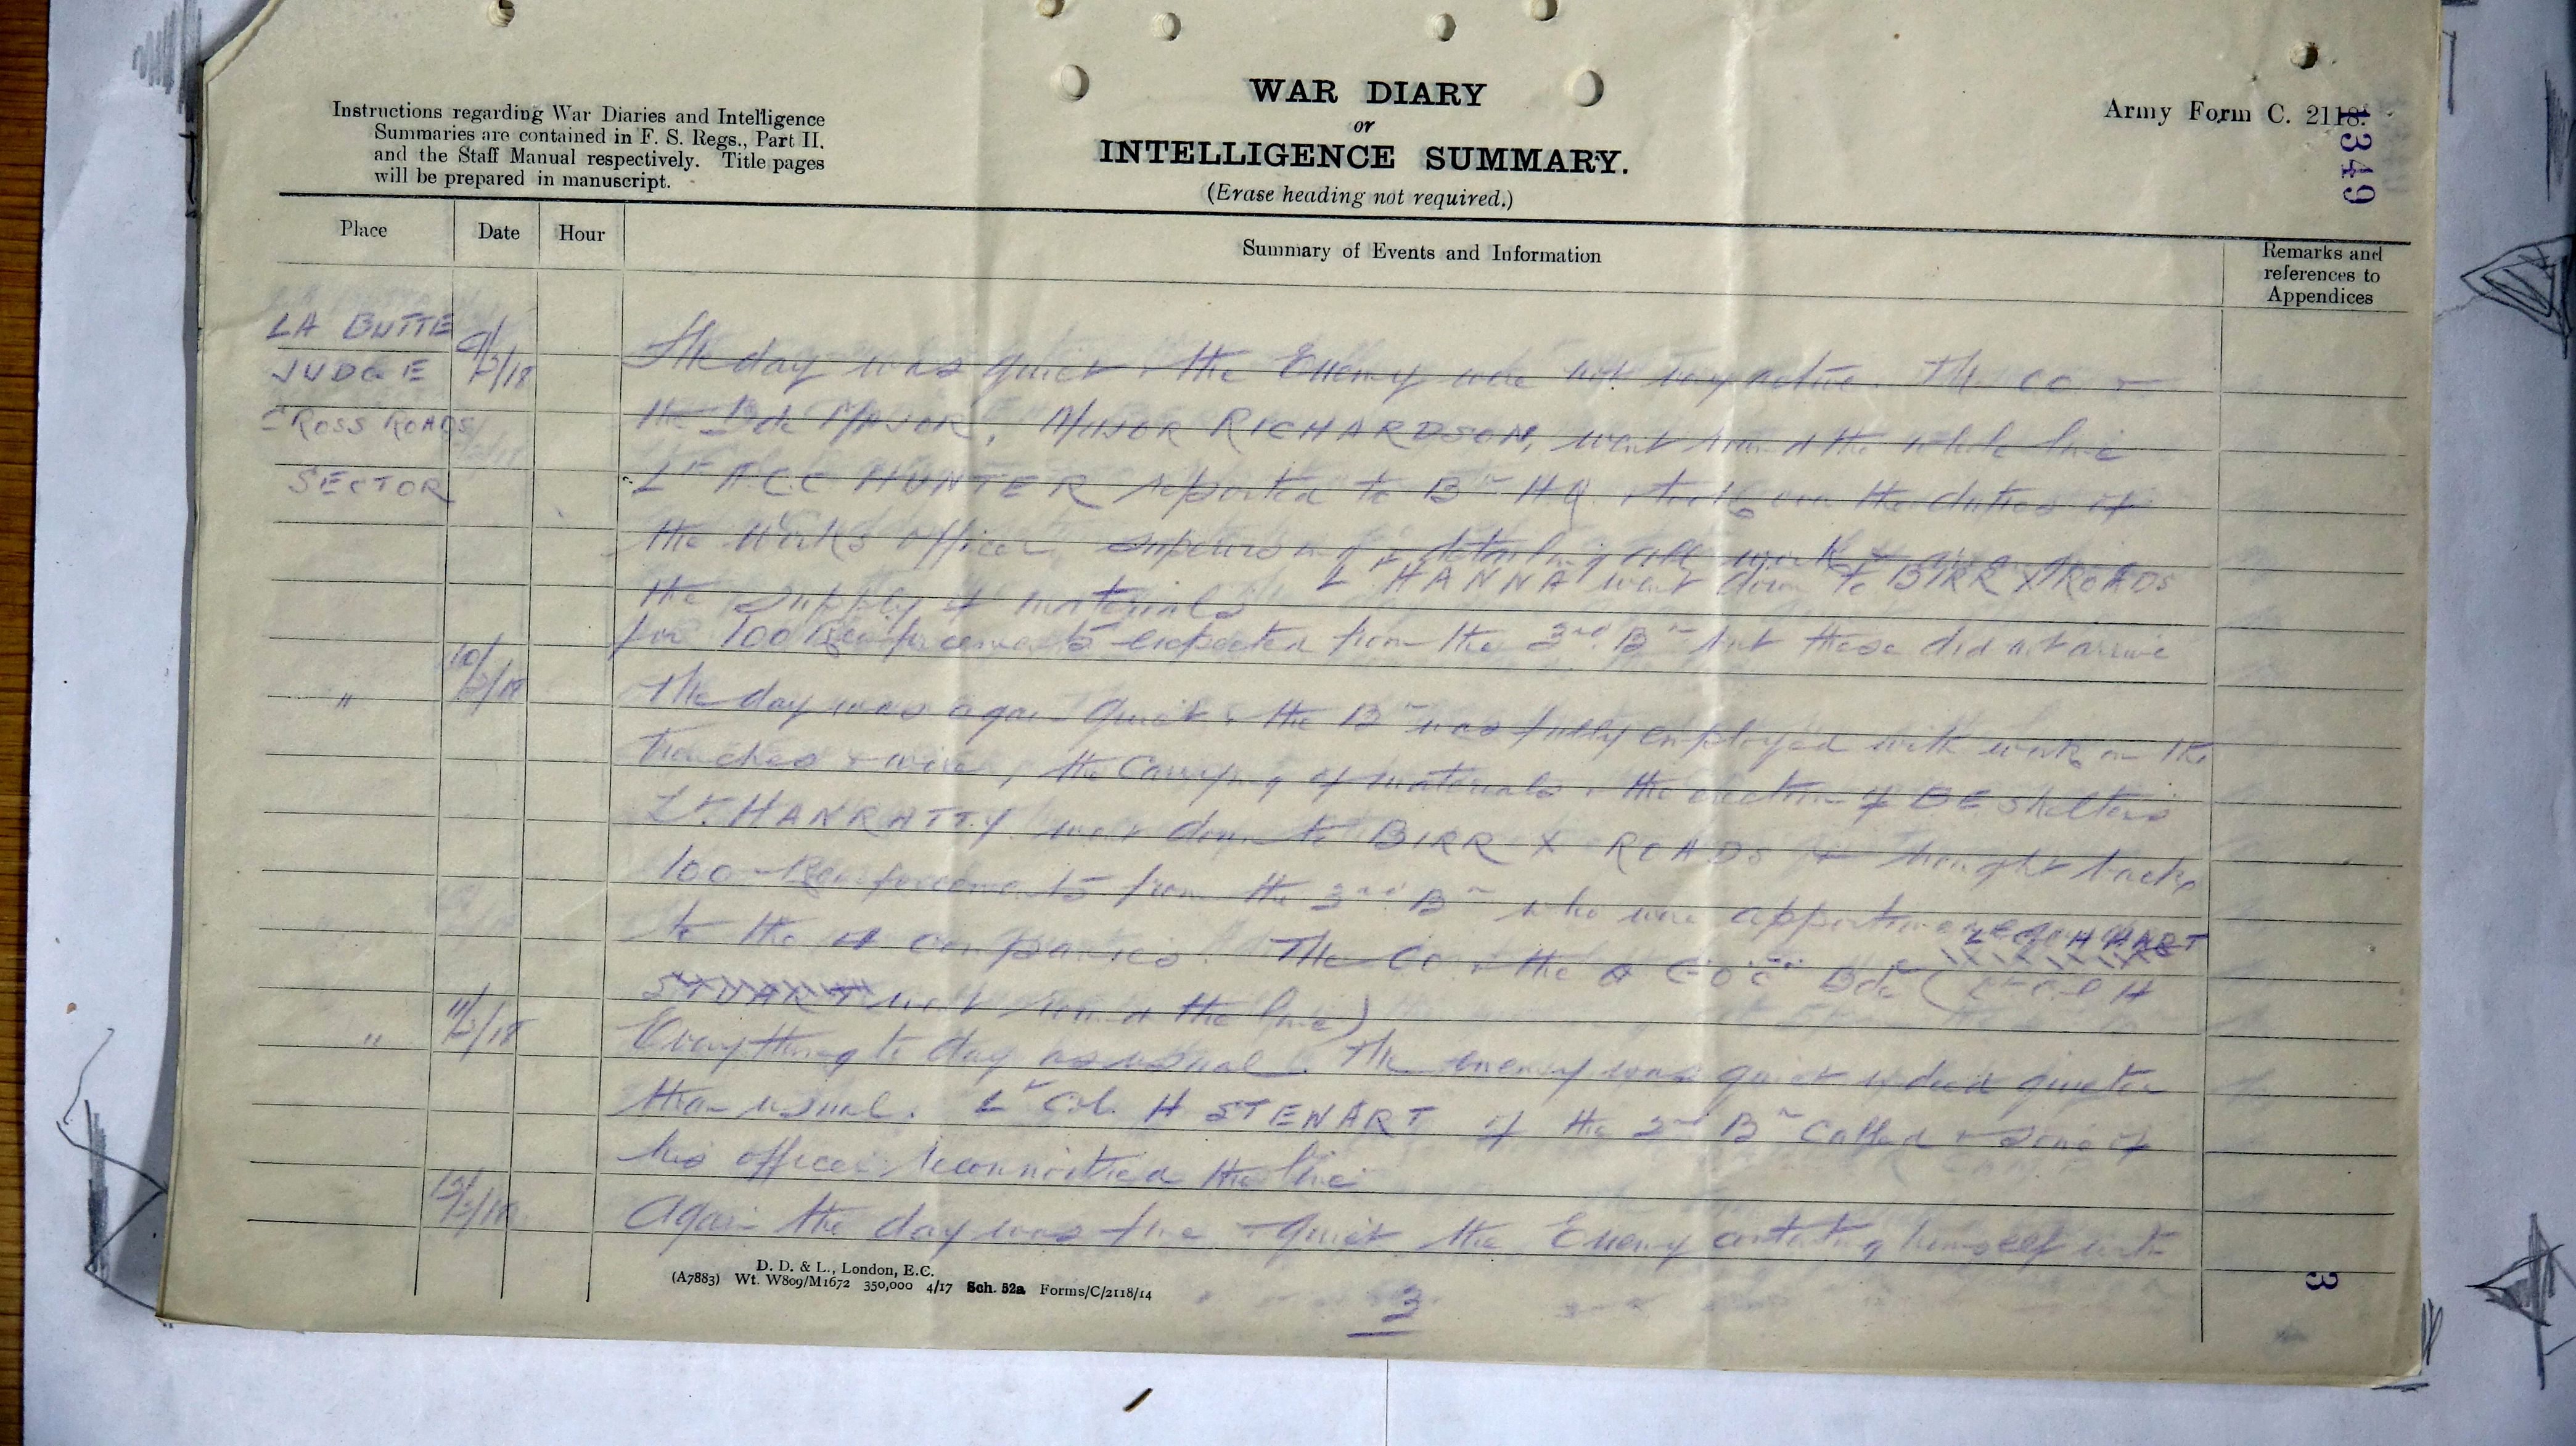 Instructions regarding War Diaries and Intelligence
Summaries are contained in F. S. Regs., Part II.
and the Staff Manual respectively. Title pages
will be prepared in manuscript.
WAR DIARY
or
INTELLIGENCE SUMMARY.
(Erase heading not required.)
Army Form C. 2118.
1349
Place
Date
Hour
Summary of Events and Information
Remarks and
references to
Appendices
LA BUTTE
JUDGE
CROSS ROADS
SECTOR
9/3/18
The day was quiet & the Enemy were not very active. The CO &
the Bde MAJOR, MAJOR RICHARDSON, went round the whole line
Lt A.C.C HUNTER reported to Bn HQ & took over the duties of
the Works officer, supervising & detailing all work &
the supply of materials Lt HANNA went down to BIRR X ROADS
for 100 Reinforcements expected from the 3rd Bn but these did not arrive
" 10/3/18
The day was again quiet & the Bn was fully employed with work on the
trenches & wire, the carrying of materials & the erection of shelters
Lt. HANRATTY went down to BIRR X ROADS & brought back
100 Reinforcements from the 3rd Bn who were apportioned
to the 4 companies. The CO & the Bde (Lt Col H
HART
STUART went round the line)
" 11/3/18
Everything to day as usual. The enemy was quiet indeed quieter
than usual. Lt Col. H STEWART of the 2nd Bn called & some of
his officers reconnoitred the line
12/3/18
Again the day was fine & quiet the Enemy contenting himself with
D. D. & L., London, E.C.
(A7883) Wt. W809/M1672 350,000 4/17 Sch. 52a Forms/C/2118/14
3
3